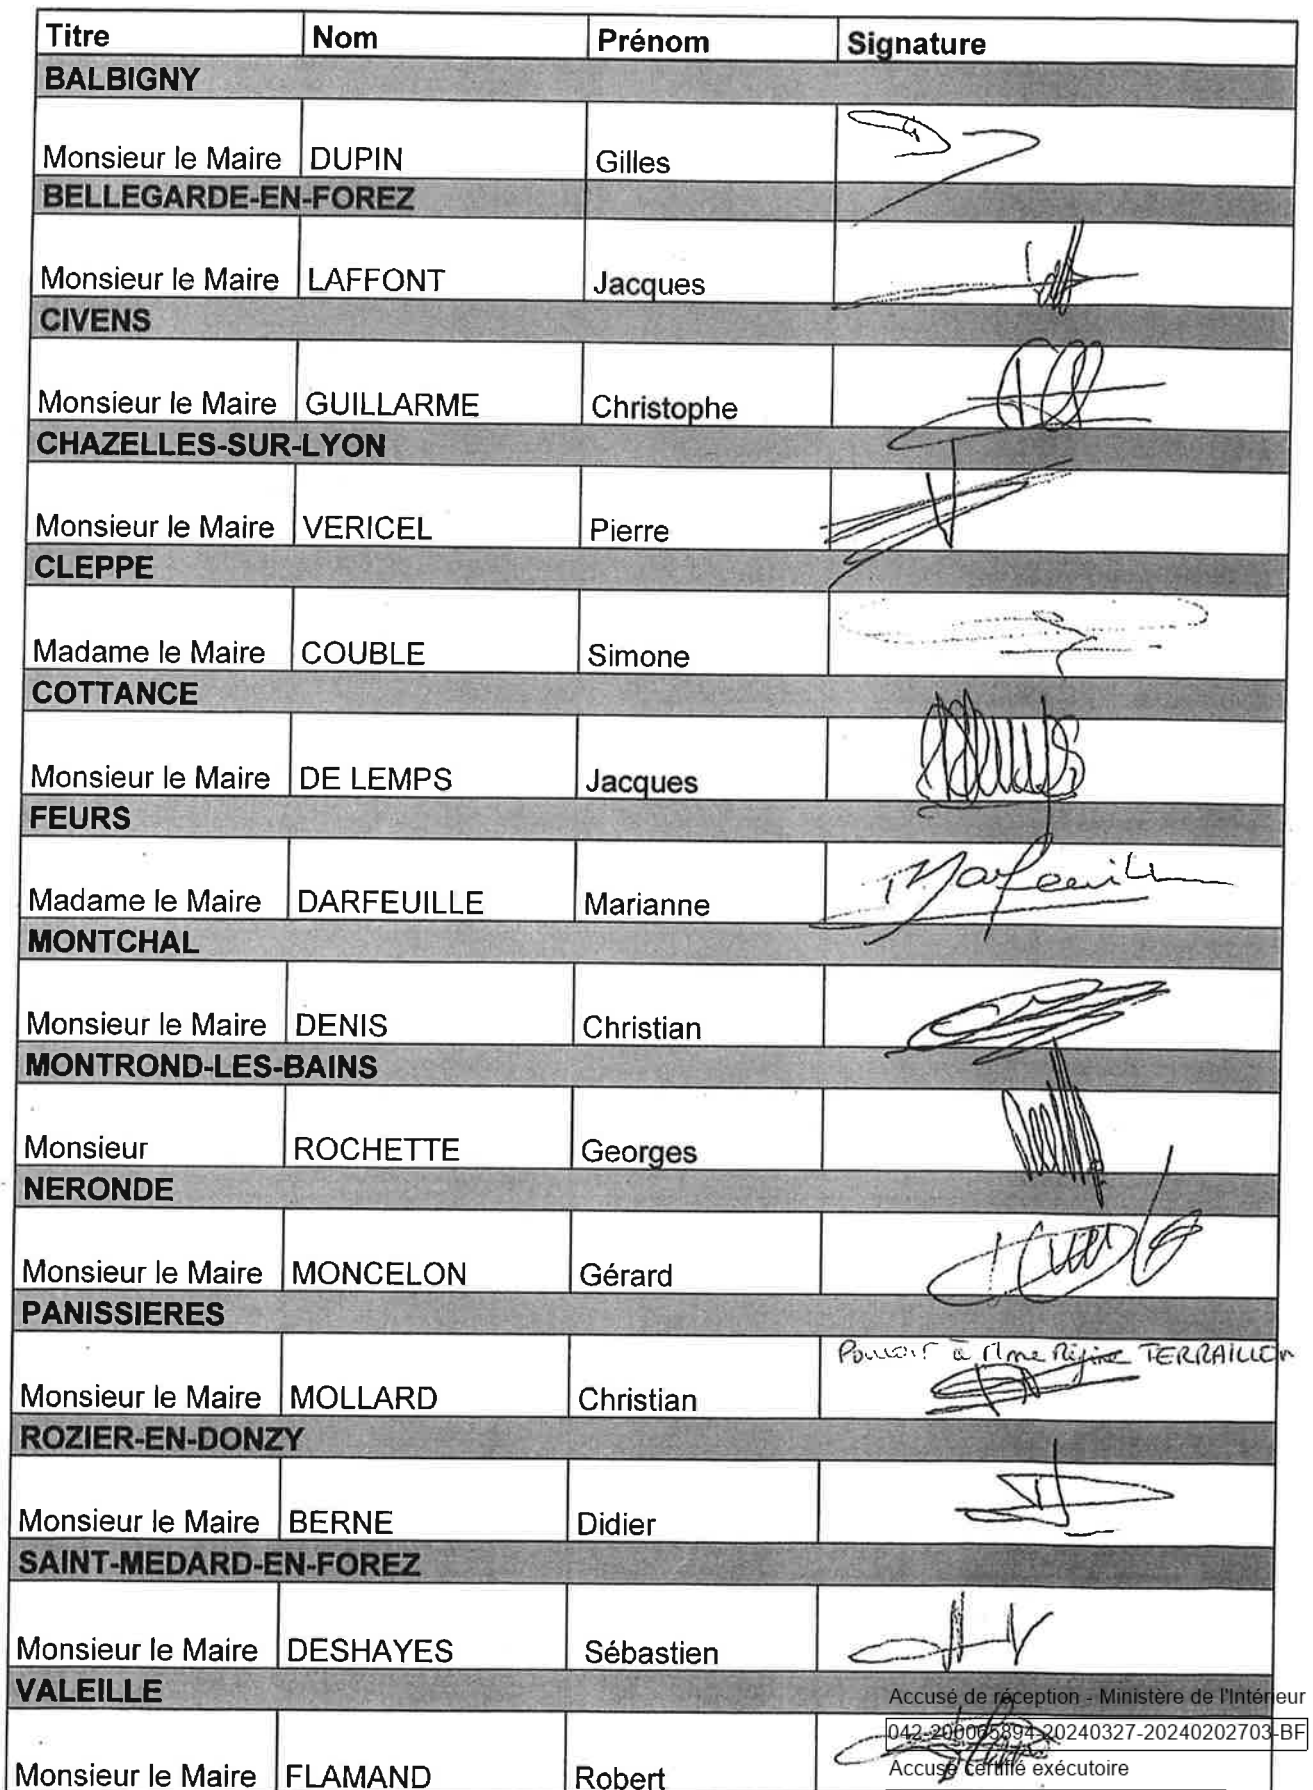 Titre Nom Prénom Signature
BALBIGNY
Monsieur le Maire DUPIN Gilles
BELLEGARDE-EN-FOREZ
Monsieur le Maire LAFFONT Jacques
CIVENS
Monsieur le Maire GUILLARME Christophe
CHAZELLES-SUR-LYON
Monsieur le Maire VERICEL Pierre
CLEPPE
Madame le Maire COUBLE Simone
COTTANCE
Monsieur le Maire DE LEMPS Jacques
FEURS
Madame le Maire DARFEUILLE Marianne
MONTCHAL
Monsieur le Maire DENIS Christian
MONTROND-LES-BAINS
Monsieur ROCHETTE Georges
NERONDE
Monsieur le Maire MONCELON Gérard
PANISSIERES
Pouvoir à Mme Régine TERRAILLON
Monsieur le Maire MOLLARD Christian
ROZIER-EN-DONZY
Monsieur le Maire BERNE Didier
SAINT-MEDARD-EN-FOREZ
Monsieur le Maire DESHAYES Sébastien
VALEILLE
Accusé de réception - Ministère de l'Intérieur
042-200065894-20240327-20240202703-BF
Accusé certifié exécutoire
Monsieur le Maire FLAMAND Robert